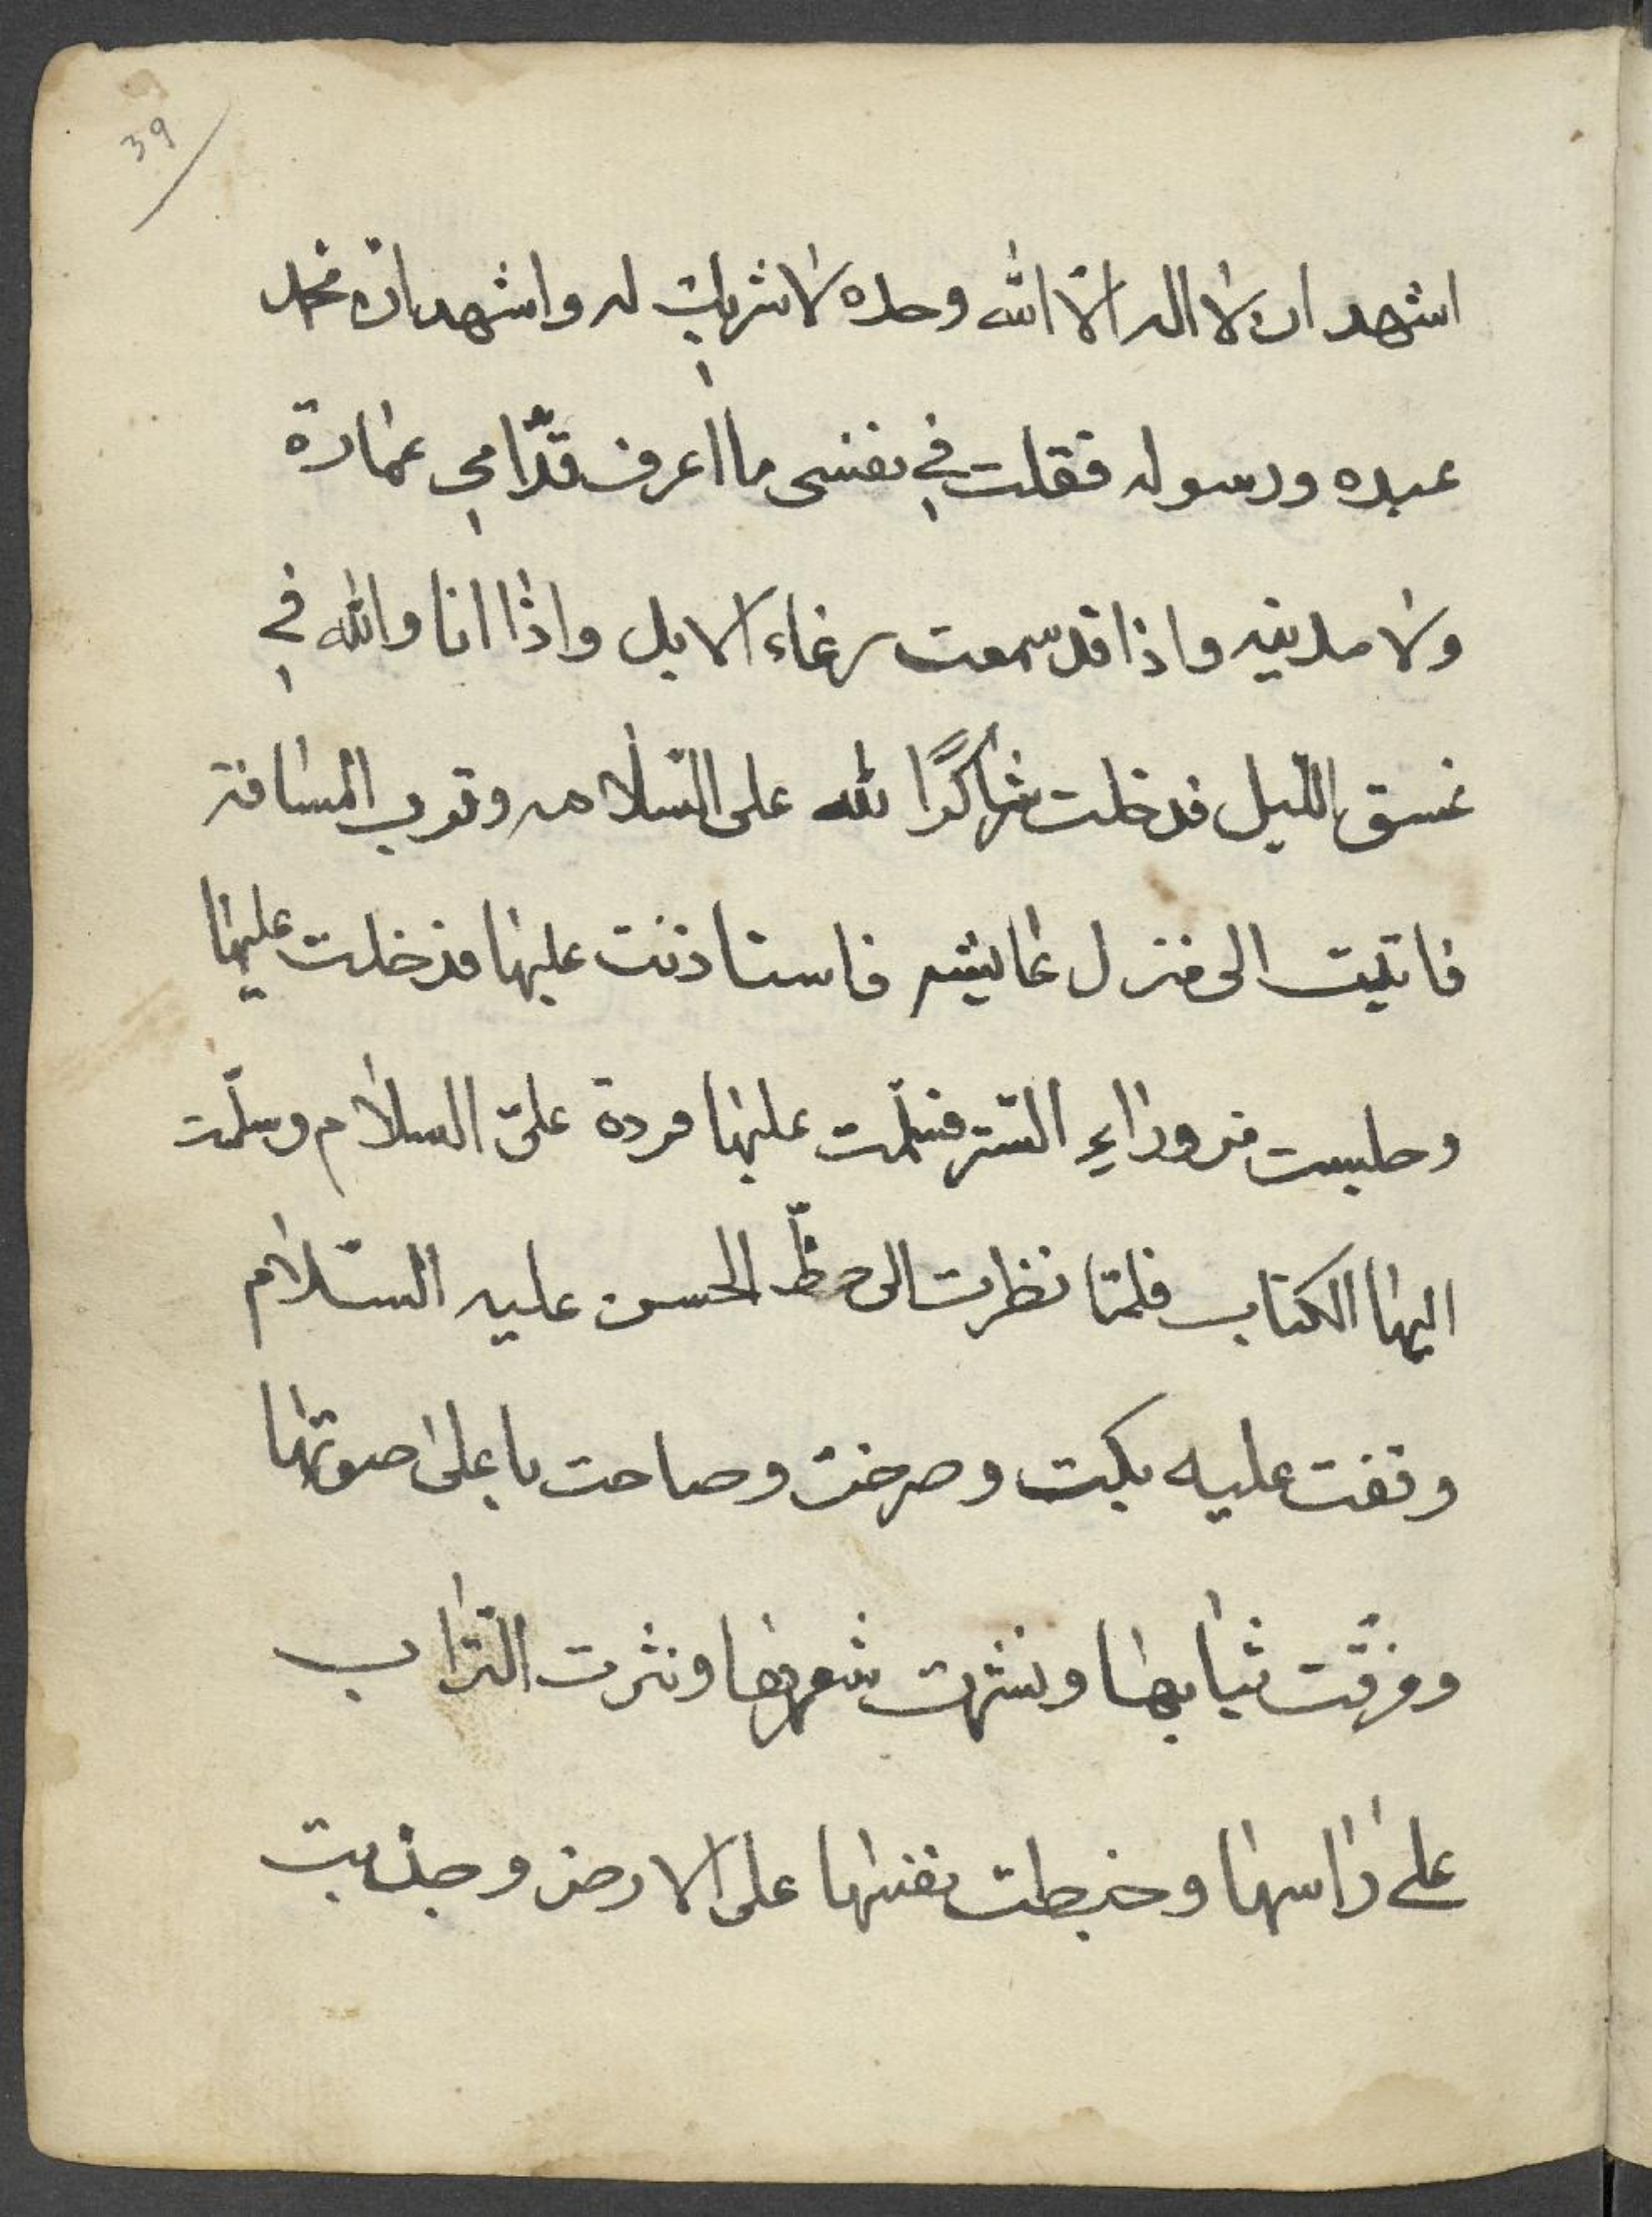 39
اشهد ان لا اله الّا الله وحده لا شريك له واشهد ان محمد
عبده ورسوله فقلت في نفسى ما اعرف قدّامي عمارة
ولا مدينه واذا قد سمعت رغاء الابل واذا انا والله في
غسق اللّيل فدخلت شاكرًا لله على السّلامه وقرب المسافة
فاتيت الى منزل عايشه فاستاذنت عليها فدخلت عليها
وجلست من وراءِ السّتر فسلّمت عليها فردة علىّ السلام وسلّمت
اليها الكتاب فلمّا نظرت الى خطّ الحسن عليه السّلام
وقفت عليه بكت وصرخت وصاحت باعلىٰ صوتها
ومزقّت ثيابها ونشرت شعرها ونثرت التّراب
على راسها وخبطت نفسها على الارض وجذبت